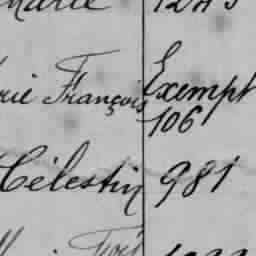 Marie 1243
rie François Exempt
106
Célestin 981